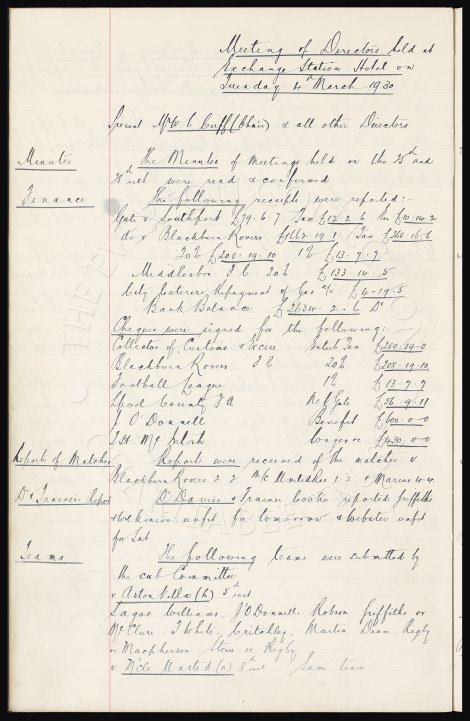 Meeting of Directors held at
Exchange Station Hotel on
Tuesday 4th March 1930
Present Mr W C Cuff (Chair) & all other Directors
Minutes The Minutes of meetings held on the 25th and
28th ult were read & confirmed
Finance The following receipts were reported:-
Gate v Southport 79.6.7 Tax £12.2.6
do v Blackburn Rovers £1662.19.1 Tax £268.16.6
20% £208.19.10 1% £13.7.7
Middlesbro F C 20% £133.14.5
City Caterers Repayment of Gas a/c £4-19.5
Bank Balance £2634.2.6 Dr
Cheques were signed for the following:-
Collector of Customs & Excise Entert Tax £280.19.0
Blackburn Rovers F C 20% £208.19.10
Football League 1% £13.7.7
Lpool County F A Gate £56.9.11
J O'Donnell Benefit £600.0.0
T H McIntosh Wages &c £430.0.0
Reports of Matches Reports were received of the matches v
Blackburn Rovers 2.2 M/c United Res 1.2 v 4.4.
Dr & Trainers Report Dr Davies & Trainer Cooke reported Griffiths
& Wilkinson unfit for tomorrow & Webster unfit
for Sat
Teams The following teams were submitted by
the sub Committee
v Aston Villa (h) 5th inst
Sagar Williams, J O'Donnell. Robson Griffiths or
McClure. T White. Critchley, Martin Dean. Rigby
or Macpherson Stein or Rigby
v N'cle United (a) 8th inst Same team